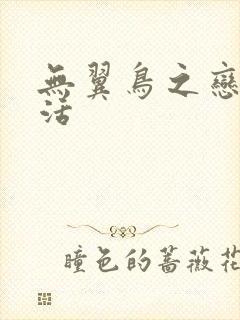 無翼鳥之戀
活
瞳色的薔薇花